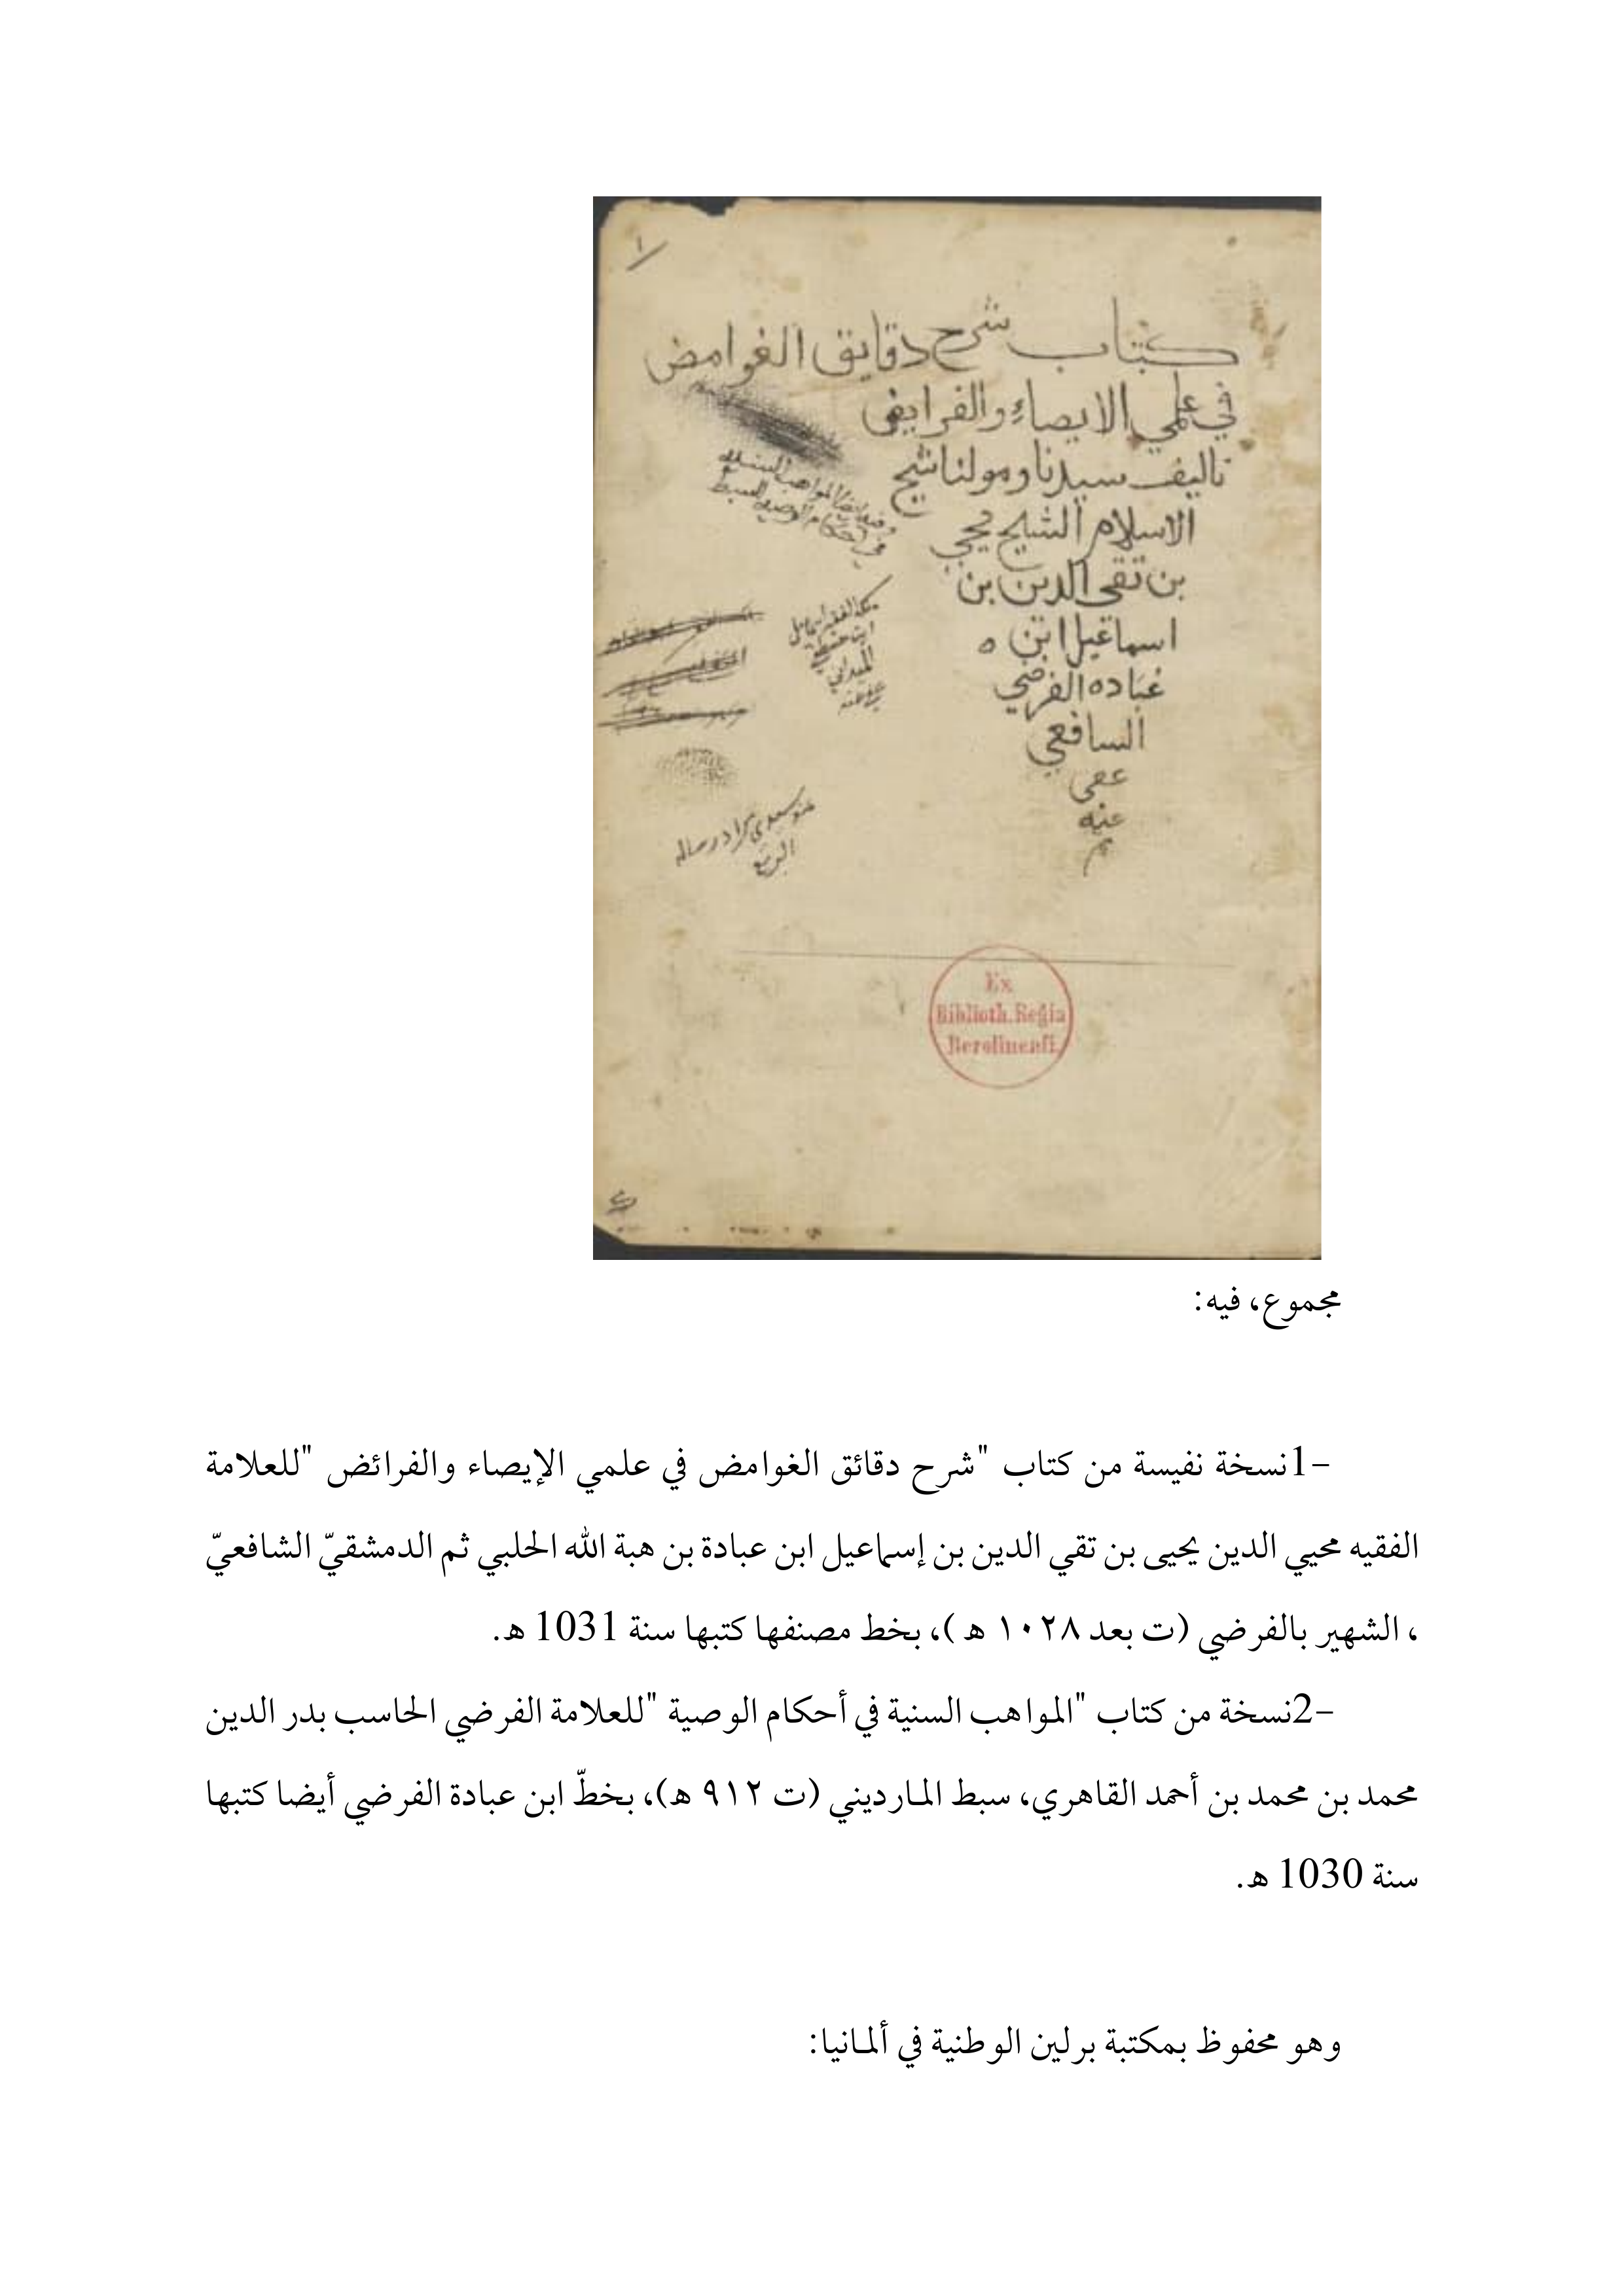 ١
كتاب شرح دقايق الغوامض
في علمي الايصاء والفرايض
تاليف سيدنا ومولنا شيخ
الاسلام الشيخ يحيى
بن تقى الدين بن
اسماعيل ابن ه
عباده الفرضي
السافعي
عفى
عنه
م
وفيه ايضا المواهب السنيه
في احكام الوصيه للسبط
ابن
الميداني
عفي عنه
سيدي مراد رساله
الربع
Ex
Biblioth. Regia
Berolinensi.
مجموع، فيه:
-1نسخة نفيسة من كتاب "شرح دقائق الغوامض في علمي الإيصاء والفرائض "للعلامة
الفقيه محيي الدين يحيى بن تقي الدين بن إسماعيل ابن عبادة بن هبة الله الحلبي ثم الدمشقيّ الشافعيّ
، الشهير بالفرضي (ت بعد ١٠٢٨ هـ)، بخط مصنفها كتبها سنة 1031 هـ.
-2نسخة من كتاب "المواهب السنية في أحكام الوصية "للعلامة الفرضي الحاسب بدر الدين
محمد بن محمد بن أحمد القاهري، سبط المارديني (ت ٩١٢ هـ)، بخطّ ابن عبادة الفرضي أيضا كتبها
سنة 1030 هـ.
وهو محفوظ بمكتبة برلين الوطنية في ألمانيا: